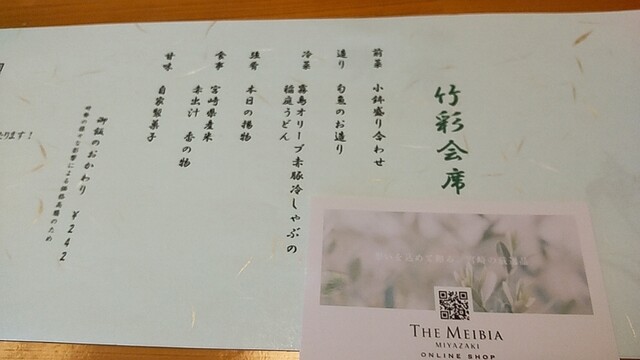 竹彩会席
前菜 小鉢盛り合わせ
造り 旬魚のお造り
冷菜 霧島オリーブ赤豚冷しゃぶの
稲庭うどん
強肴 本日の揚物
食事 宮崎県産米
赤出汁 香の物
甘味 自家製菓子
御飯のおかわり ¥242
ります!
THE MEIBIA
MIYAZAKI
ONLINE SHOP